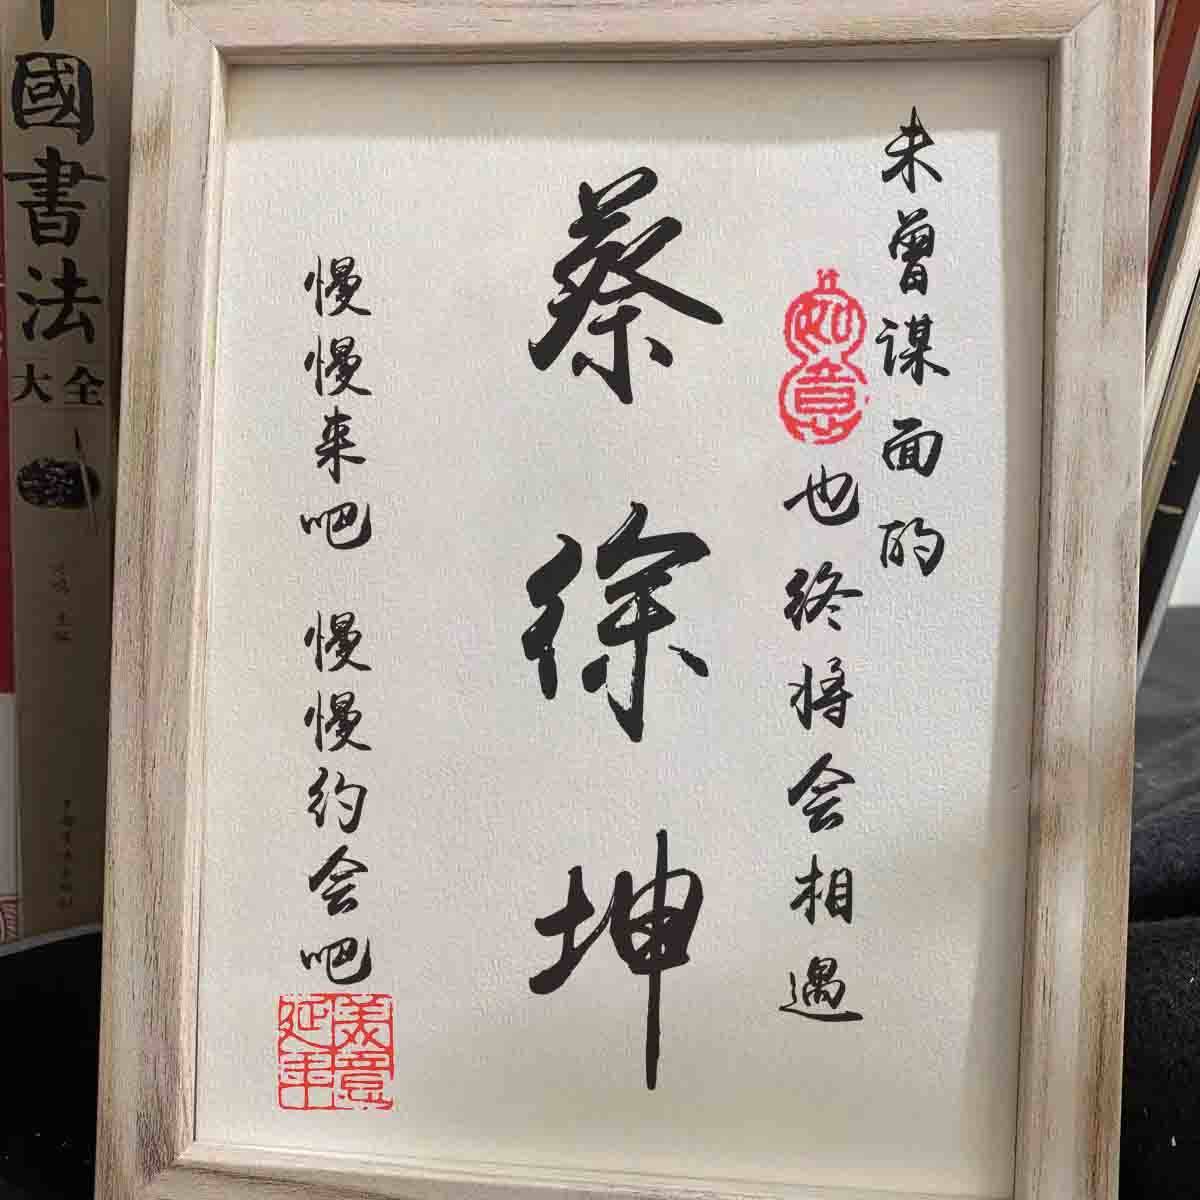 未曾谋面的
也终将会相遇
如意
蔡徐坤
慢慢来吧 慢慢约会吧
美意延年
國書法
大全